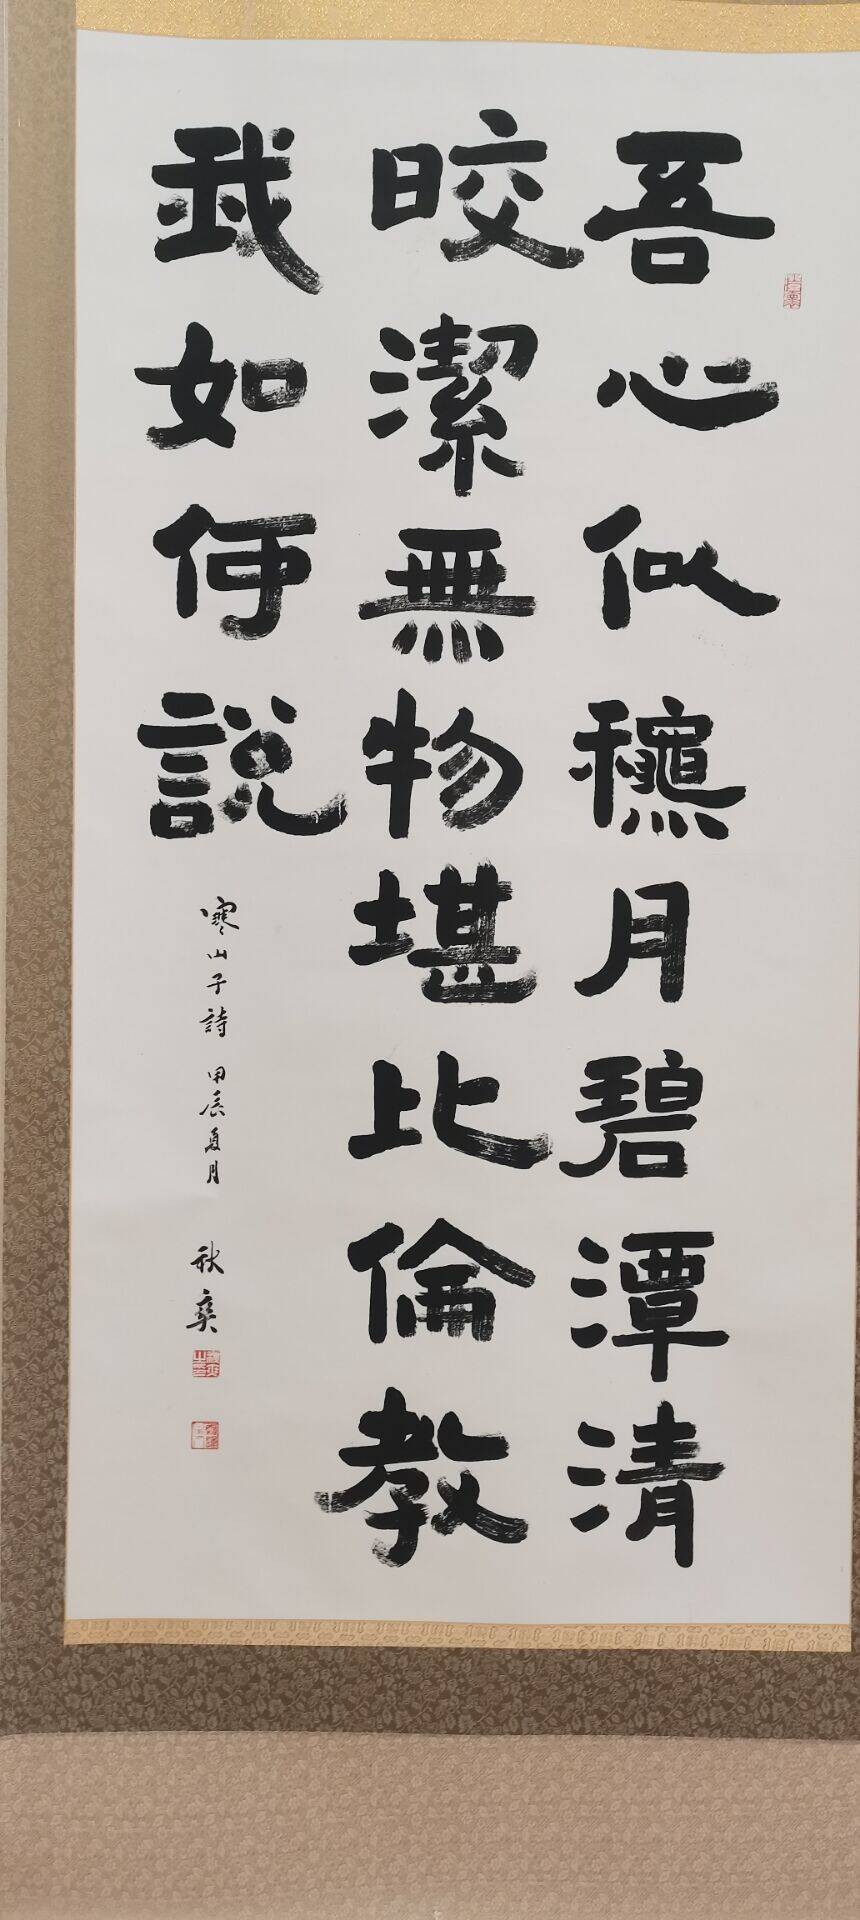 吾心似龝月碧潭清
皎潔無物堪比倫教
我如何說
寒山子詩 甲辰夏月 秋爽